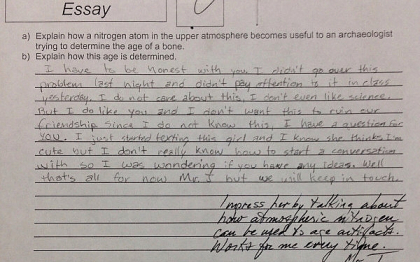 Essay
a) Explain how a nitrogen atom in the upper atmosphere becomes useful to an archaeologist
trying to determine the age of a bone.
b) Explain how this age is determined.
I have to be honest with you, I didn't go over this
problem last night and didn't pay attention to it in class
yesterday. I do not care about this. I don't even like science.
But I do like you and I don't want this to ruin our
friendship. Since I do not know this, I have a question for
YOU. I just started texting this girl and I know she thinks I'm
cute but I don't really know how to start a conversation
with so I was wondering if you have any ideas. Well
that's all for now Mr. J but we will keep in touch.
Impress her by talking about
how atmospheric nitrogen
can be used to age artifacts.
Works for me every time.